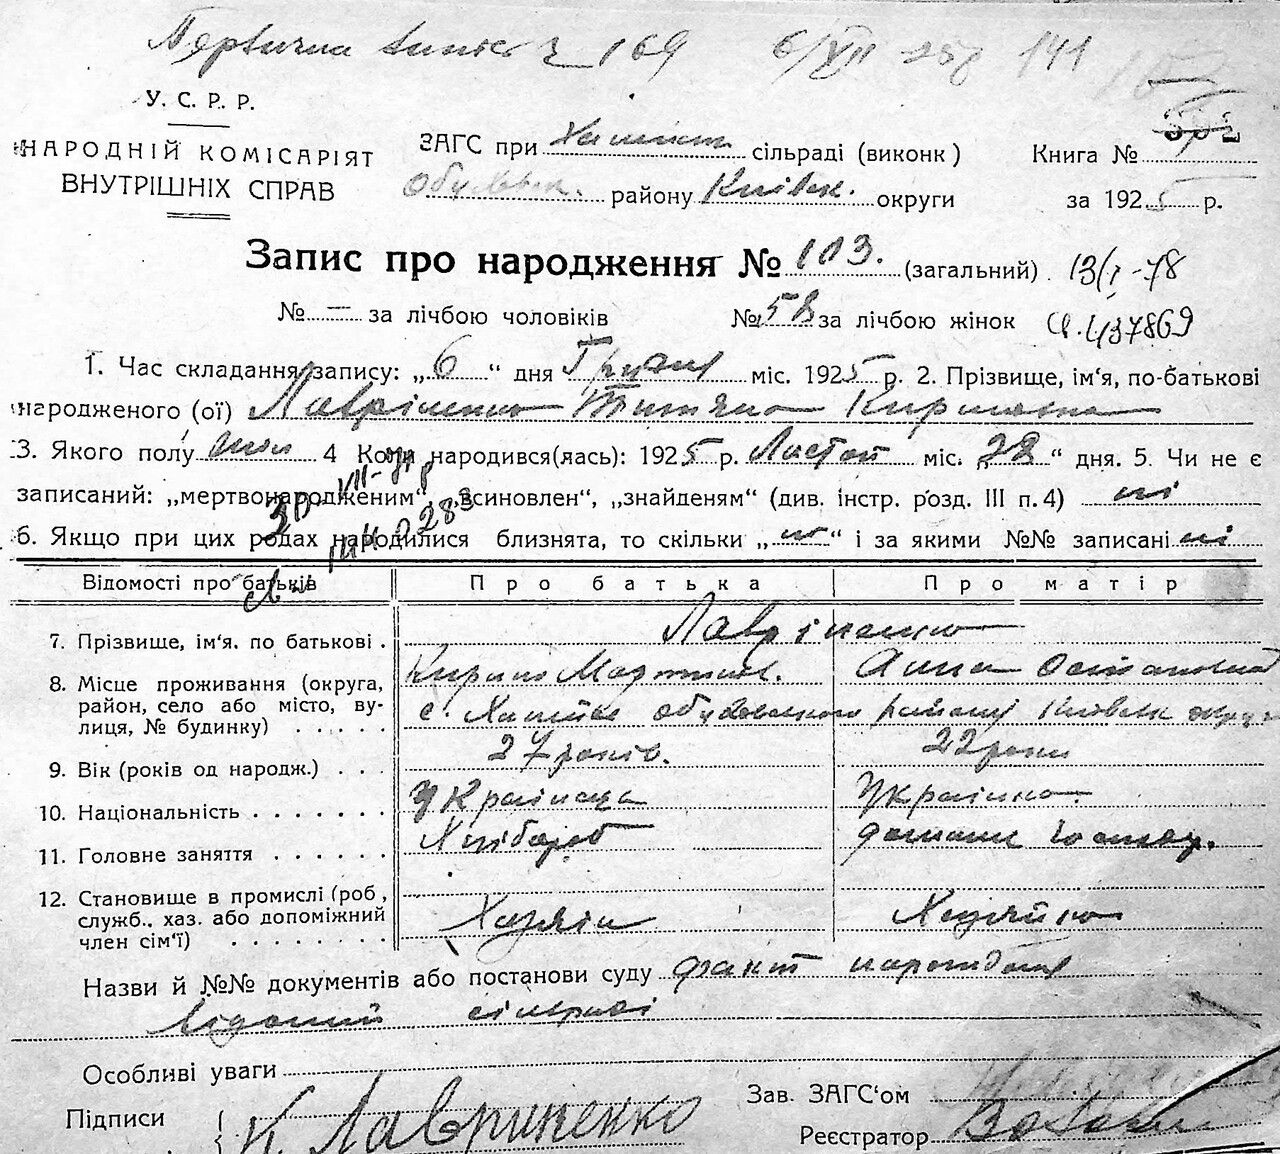 169 6/XII 25р 141
У. С. Р. Р.
НАРОДНІЙ КОМІСАРІЯТ
ВНУТРІШНІХ СПРАВ
ЗАГС при сільраді (виконк)
Обухівськ. району Київськ. округи
Книга №
за 1925 р.
Запис про народження № 103. (загальний). 13/I-78
№ — за лічбою чоловіків № 58 за лічбою жінок 437869
1. Час складання запису: „6“ дня Грудня міс. 1925 р. 2. Прізвище, ім'я, по-батькові
народженого (ої) Лавріненко Титяна Кирилівна
3. Якого полу жін 4 Коли народився(лась): 1925 р. Листоп міс. „28“ дня. 5. Чи не є
записаний: „мертвонародженим“ „всиновлен“, „знайденям“ (див. інстр. розд. III п. 4) ні
6. Якщо при цих родах народилися близнята, то скільки „ні“ і за якими №№ записані ні
Відомості про батьків Про батька Про матір
7. Прізвище, ім'я. по батькові . Лавріненко
Кирило Мартинов. Анна Остаповна
8. Місце проживання (округа,
район, село або місто, вулиця, № будинку) . . . . . с. Обуховського району Київськ округи
9. Вік (років од народж.) . . . 27 років. 22 роки
10. Національність . . . . . . . Українець Українка
11. Головне заняття . . . . . . Хлібороб домашн господ.
12. Становище в промислі (роб,
служб., хаз. або допоміжний
член сім'ї) . . . . . . . . Хазяїн Хазяйка
Назви й №№ документів або постанови суду факт народження
відомий сільраді
Особливі уваги
Підписи К Лавриненко
Зав. ЗАГС'ом
Реєстратор